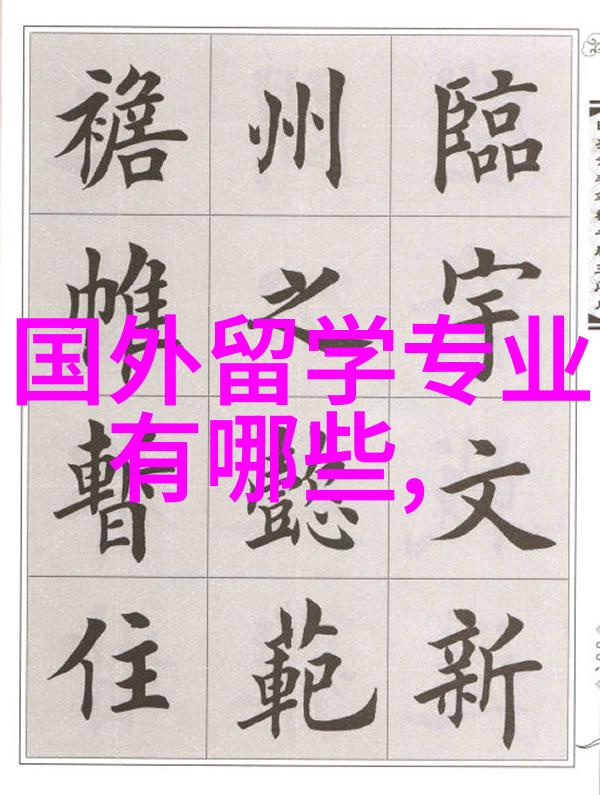 国外留学专业
有哪些,
臨宇文新
州之懿範
襜帷暫住